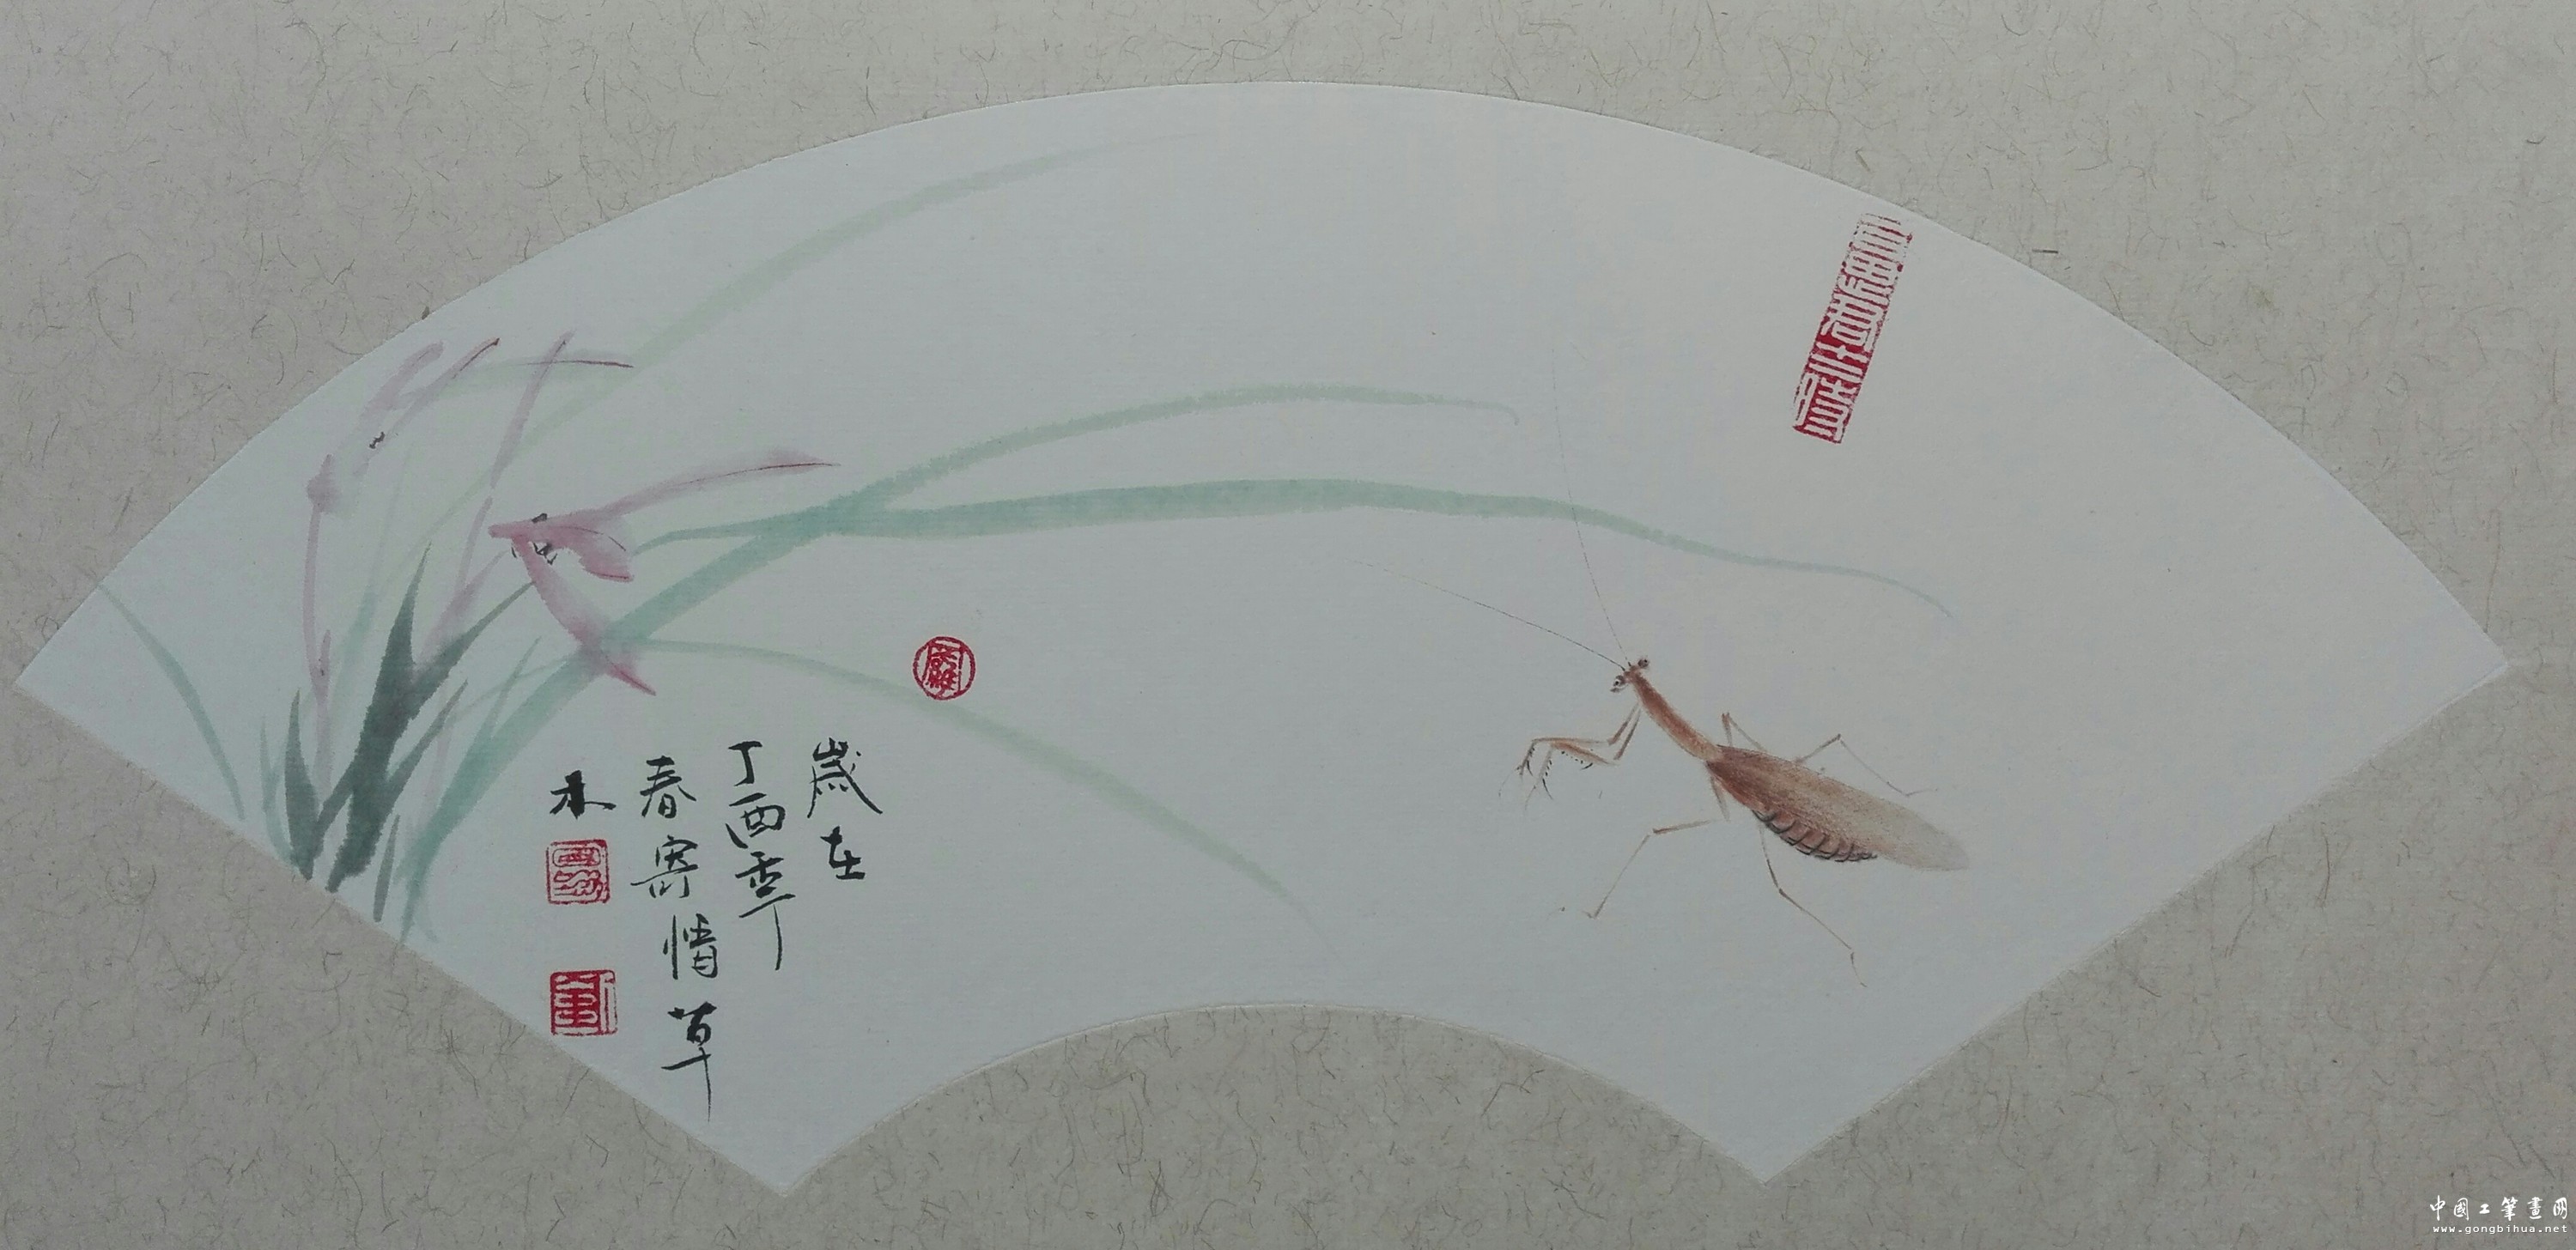 歲在
丁酉季
春寄情草
木
中國工筆畫网
www.gongbihua.net